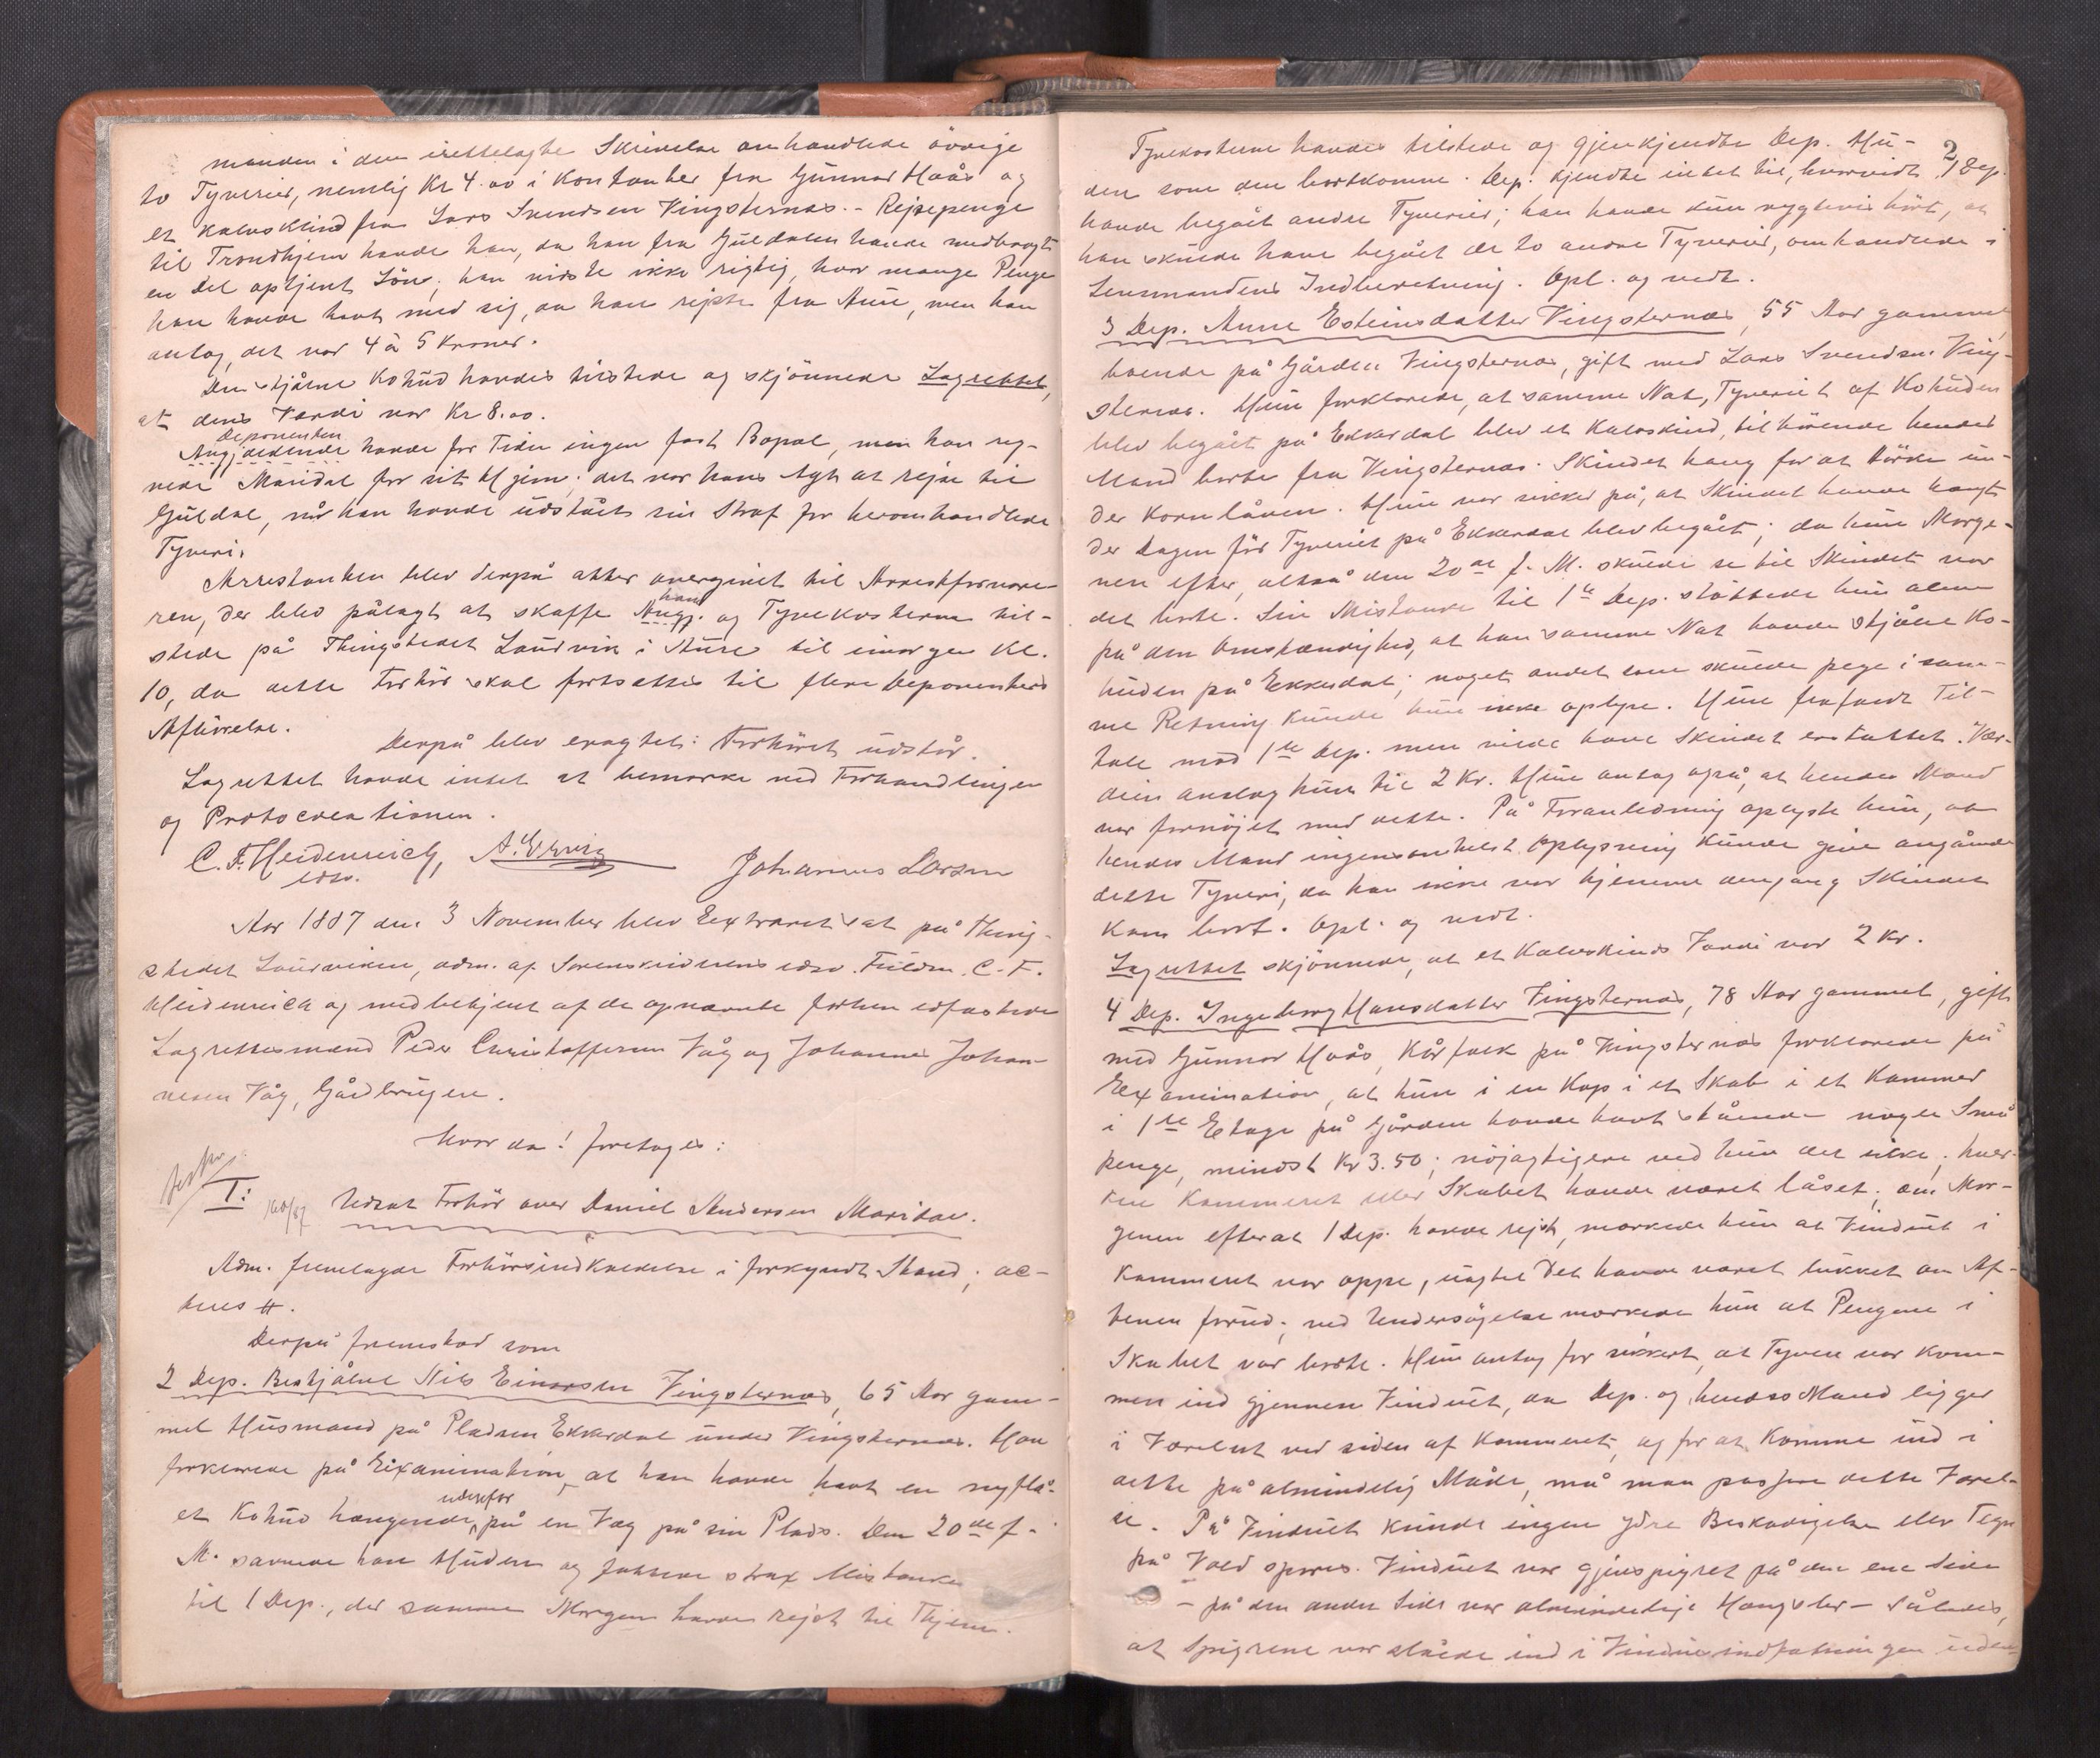 manden i den irettelagte Skrivelse omhandlede øvrige
to Tyverier, nemlig Kr 4.00 i Kontanter fra Gunnar Haås og
et Kalveskind fra Lars Svendsen Vingsternæs. - Rejsepenge
til Trondhjem havde han, da han fra Guldalen havde medbragt
en Del optjent Løn; han vidste ikke rigtig, hvor mange Penge
han havde havt med sig, da han rejste fra Aure, men han
antog, det var 4 à 5 Kroner.
Den stjålne Kohud havdes tilstede og skjønnede Lagrettet,
at dens Værdi var Kr 8.00.
Deponenten
Angjældende havde for Tiden ingen fast Bopæl, men han reg-
nede Maridal for sit Hjem; det var hans Agt at rejse til
Guldal, når han havde udstået sin Straf for heromhandlede
Tyveri.
Arrestanten blev derpå atter overgivet til Arrestforvare-
ren, der blev pålagt at skaffe Angj. og Tyvekosterne til-
han
stede på Thingstedet Laurvik i Aure til imorgen Kl.
10, da dette Forhør skal fortsættes til flere Deponenters
Afhørelse.
Derpå blev eragtet: Forhøret udstår.
Lagrettet havde intet at bemærke ved Forhandlingen
og Protocolationen.
C. F. Heidenreich, Johannes Larsen
edsv.
Aar 1887 den 3 November blev Extraret sat på Thing-
stedet Laurviken, adm. af Sorenskriverens edsv. Fuldm. C. F.
Heidenreich og medbetjent af de opnævnte forhen edfæstede
Lagrettesmænd Peder Christoffersen Våg og Johannes Johan-
nesen Våg, Gårdbrugere.
Hvor da! foretages:
I: 160/87 Udsat Forhør over Daniel Andersen Maridal.
Adm. fremlagde Forhørsindkaldelse i forkyndt Stand; ac-
teres #.
Derpå fremstod som
2 Dep. Bestjålne Nils Einarsen Vingsternæs, 65 Aar gam-
mel Husmand på Pladsen Ekkerdal under Vingsternæs. Han
forklarede på Examination, at han havde havt en nyflå-
udenfor
et Kohud hængende på en Væg på sin Plads. Den 20de f.
M. savnede han Huden og fattede strax Mistanke
til 1 Dep., der samme Morgen havde rejst til Thjem.
2
Tyvekosterne havdes tilstede og gjenkjendte Dep. Hu-
den som den bortkomne. Dep. kjendte intet til, hvorvidt 1 Dep.
havde begået andre Tyverier; han havde kun rygtevis hørt, at
han skulde have begået de to andre Tyverier, omhandlede i
Lensmandens Indberetning. Opl. og vedt.
3 Dep. Anne Esteinsdatter Vingsternæs, 55 Aar gammel
boende på Gården Vingsternæs, gift med Lars Svendsen Ving-
sternæs. Hun forklarede, at samme Nat, Tyveriet af Kohuden
blev begået på Ekkerdal blev et Kalveskind, tilhørende hendes
Mand borte fra Vingsternæs. Skindet hang for at tørke un-
der Kornlåven. Hun var sikker på, at Skindet havde hængt
der Dagen før Tyveriet på Ekkerdal blev begået; da hun Morge-
nen efter, altså den 20de f. M. skulde se til Skindet var
det borte. Sin Mistanke til 1ste Dep. støttede hun alene
på den Omstændighed, at han samme Nat havde stjålet Ko-
huden på Ekkerdal; noget andet som skulde pege i sam-
me Retning kunde hun ikke oplyse. Hun frafaldt Til-
tale mod 1ste Dep. men vilde have Skindet erstattet. Vær-
dien anslog hun til 2 Kr. Hun antog også, at hendes Mand
var fornøjet med dette. På Foranledning oplyste hun, at
hendes Mand ingensomhelst Oplysning kunde give angående
dette Tyveri, da han ikke var hjemme dengang Skindet
kom bort. Opl. og vedt.
Lagrettet skjønnede, at et Kalveskinds Værdi var 2 Kr.
4 Dep. Ingeborg Hansdatter Vingsternæs, 78 Aar gammel, gift
med Gunnar Haås, Kårfolk på Vingsternæs forklarede på
Examination, at hun i en Kop i et Skab i et Kammer
i 1ste Etage på Gården havde havt stående nogle Små
penge, mindst Kr 3.50; nøjagtigere ved hun det ikke; hver-
ken Kammeret eller Skabet havde været låset; om Mor-
genen efterat 1 Dep. havde rejst, mærkede hun at Vinduet i
Kammeret var oppe, uagtet det havde været lukket om Af-
tenen forud; ved Undersøgelse mærkede hun at Pengene i
Skabet var borte. Hun antog for sikkert, at Tyven var kom-
men ind gjennem Vinduet, da Dep. og hendes Mand ligger
i Værelset ved siden af Kammeret, og for at komme ind i
dette på almindelig Måde, må man passere dette Værel-
se. På Vinduet kunde ingen ydre Beskadigelse eller Tegn
på Vold spores. Vinduet var gjenspigret på den ene Side
- på den anden Side var almindelige Hængsler - således,
at Spigrene var slåede ind i Vinduesindfatningen uden-